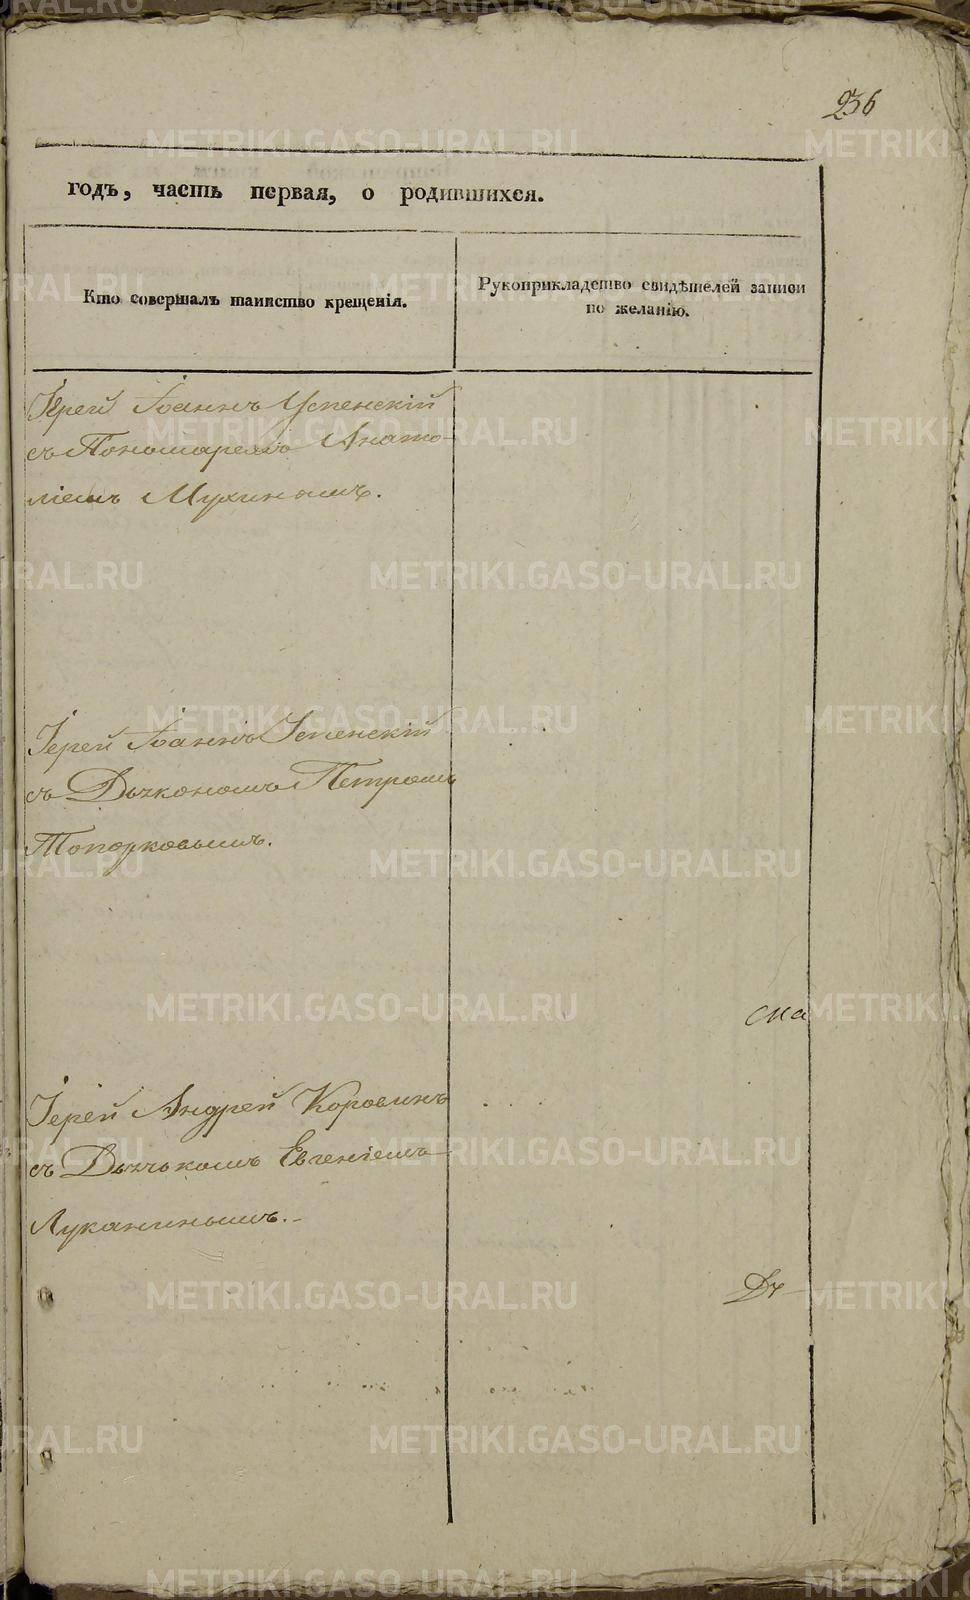 236
годъ, часть первая, о родившихся.
Кто совершалъ таинство крещенія.
Рукоприкладство свидѣтелей записи
по желанію.
Іерей Іоаннъ Успенскій
съ Пономаремъ Анато-
ліемъ Мухинымъ.
Іерей Іоаннъ Успенскій
съ Дьячкомъ Петромъ
Топорковымъ.
сма
Іерей Андрей Коровинъ
съ Дьячкомъ Евгеніемъ
Луканинымъ.-
Дь
METRIKI.GASO-URAL.RU